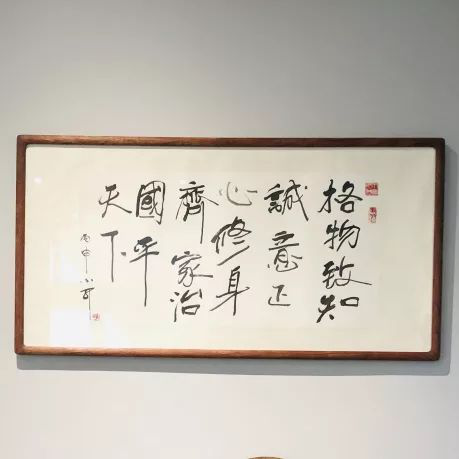 格物致知
誠意正
心修身
齊家治
國平
天下
丙申小可